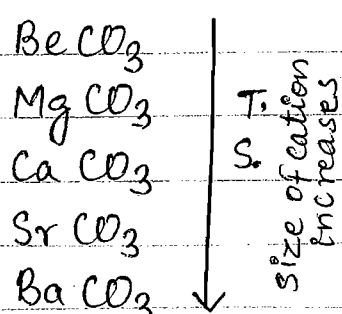 BeCO3
MgCO3
CaCO3
SrCO3
BaCO3
T.
S.
size of cation
increases